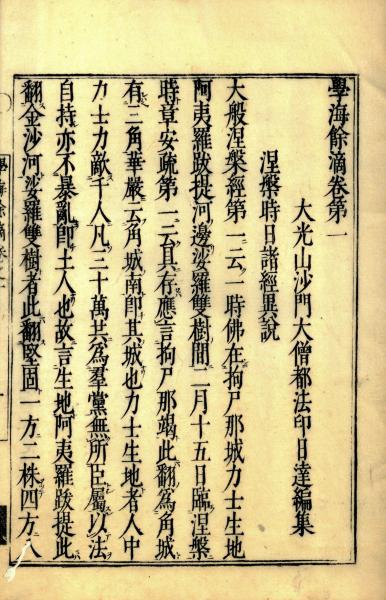 學海餘滴卷第一
大光山沙門大僧都法印日達編集
涅槃時日諸經異說
大般涅槃經第一云一時佛在拘尸那城力士生地
阿夷羅跋提河邊娑羅雙樹間二月十五日臨涅槃
時章安疏第一云具存應言拘尸那竭此翻為角城
有三角華嚴云角城南即其城也力士生地者人中
力士力敵千人凡三十萬共為羣黨無所臣屬以法
自持亦不暴亂即土人也故言生地阿夷羅跋提此
翻金沙河娑羅雙樹者此翻堅固一方二株四方八